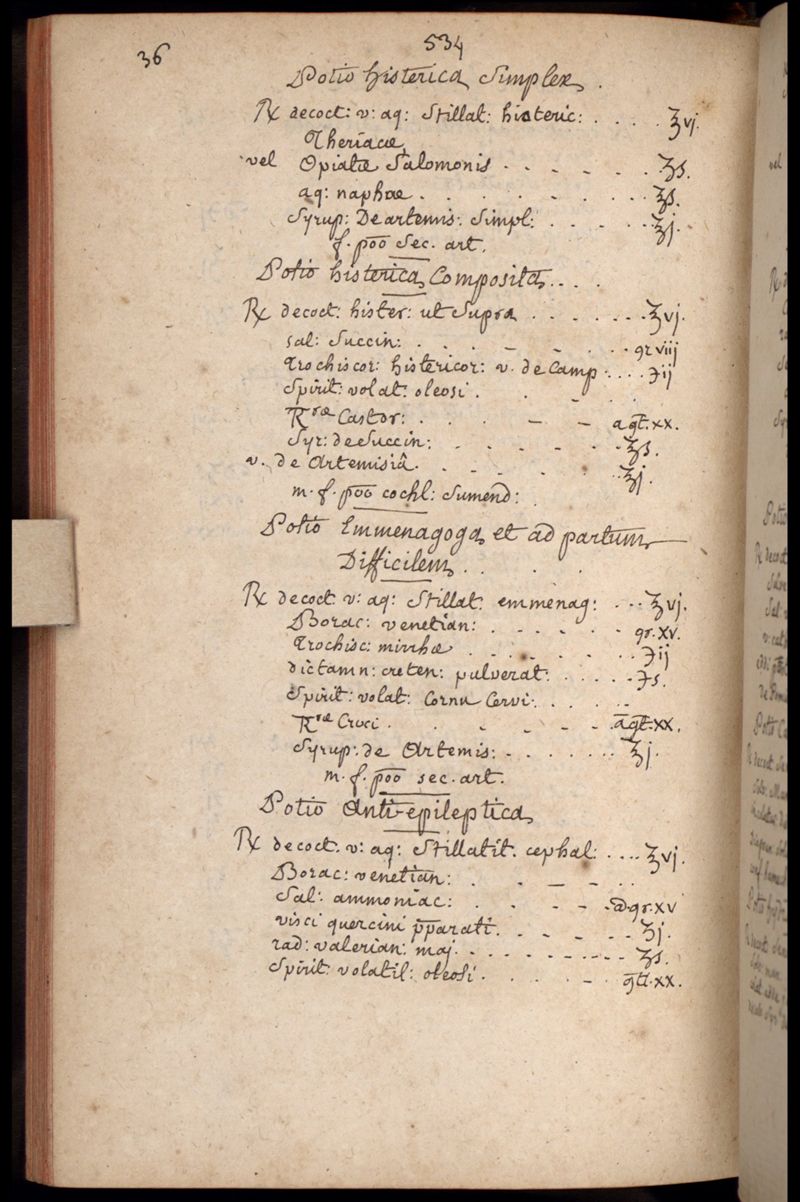 36
534
Potio histerica Simplex.
℞ decoct: v: aq: Stillat: histeric: . . . . ℥vj.
Theriacæ
vel Opiatæ Salomonis . - . - - ʒs.
aq: naphæ . . . . . . . . ℥s.
Syrup: De artemis: Simpl: . . . . . . ℥j.
f. poo Sec. art.
Potio histerica Composita . . . .
℞ decoct: hister: ut Supra . . . . . . . ℥vj.
Sal: Succin: . . . . . . . gr viij
Trochiscor: histericor: v. de Camp . . . . ℈ij
Spirit: volat: oleosi . . . .
℞ræ Castor: . . . - - a gt. xx.
Syr: de Succin: . . . . . ℥s.
v. de Artemisiâ . . . . . ℥j.
m. f. poo cochl: Sumend:
Potio Emmenagoga et ad partum
Difficilem . . . .
℞ decoct: v: aq: Stillat: emmenag: . . . ℥vj.
Borac: venetian: . . . . . . gr. XV.
Trochisc: mirrhæ . . . . . . . ℈ij
dictamn: creten: pulverat: . . . . . ℈s.
Spirit: volat: Cornu Cervi: . . . . .
℞ræ Croci . . . . - - . a gt. XX.
Syrup: de Artemis: . . . . . . . ℥j.
m. f. poo sec. art.
Potio Anti-epileptica
℞ decoct. v: aq: Stillatit. cephal: . . . . ℥vj.
Borac: venetian: . . - - . .
Sal: ammoniac: . . . - - . a gr. XV
visci quercini pparati . . . . . ʒj.
rad: valerian: maj. . . . . . . . . ʒs.
Spirit: volatil: oleosi . . . . - . gtt. XX.